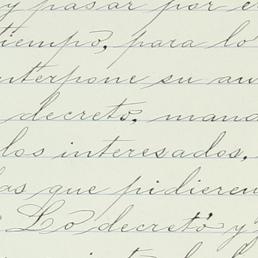 y pasar por e
tiempo, para lo
nterpone su au
decreto, mand
los interesados,
as que pidieren
Lo decretó y